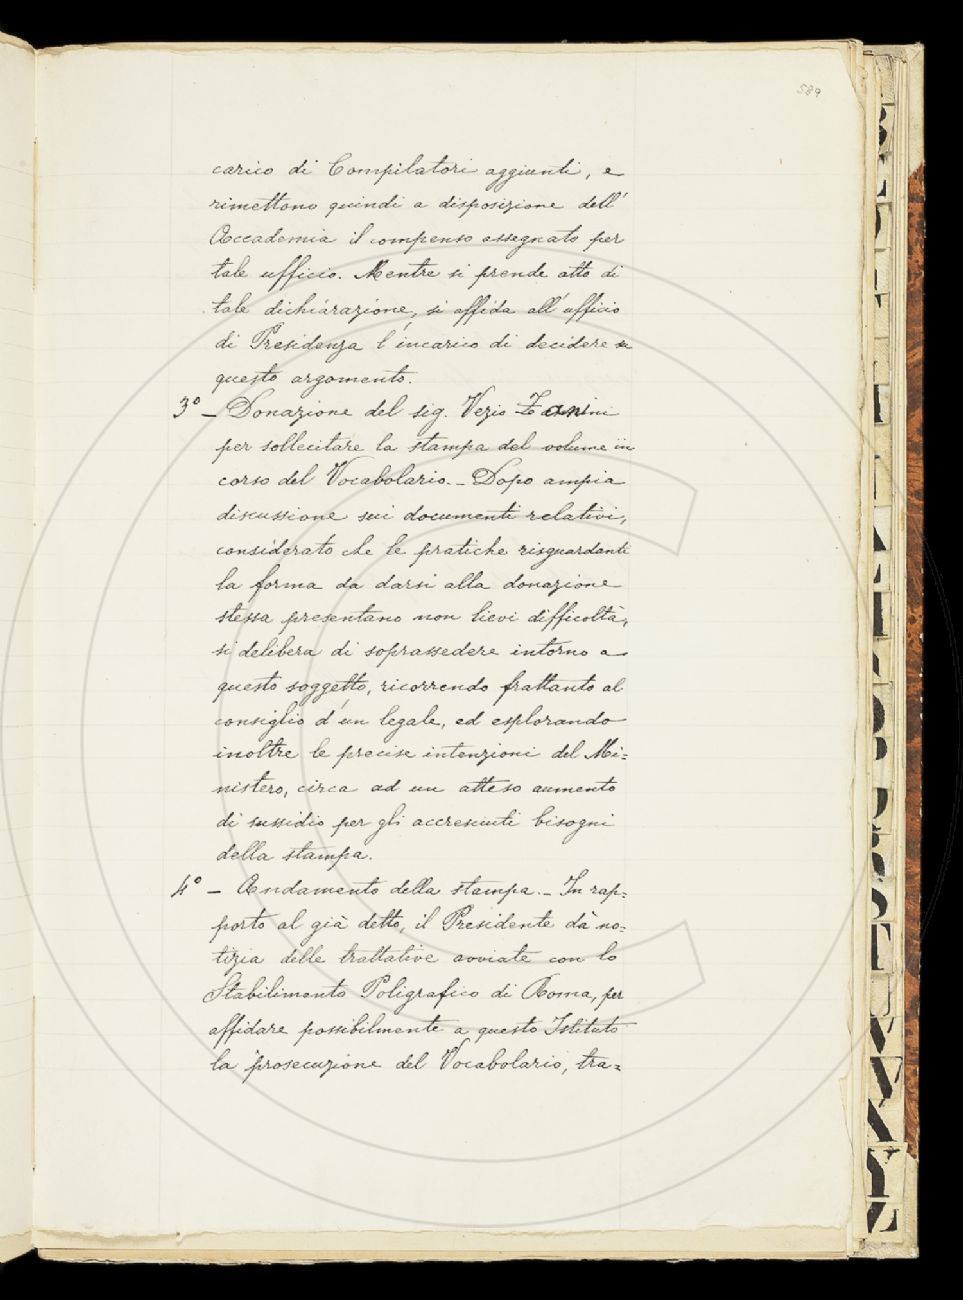 589
carico di Compilatori aggiunti, e
rimettono quindi a disposizione dell'
Accademia il compenso assegnato per
tale ufficio. Mentre si prende atto di
tale dichiarazione, si affida all'ufficio
di Presidenza l'incarico di decidere su
questo argomento.
3° - Donazione del sig. Vezio Zanini
per sollecitare la stampa del volume in
corso del Vocabolario. - Dopo ampia
discussione sui documenti relativi,
considerato che le pratiche risguardanti
la forma da darsi alla donazione
stessa presentano non lievi difficoltà,
si delibera di soprassedere intorno a
questo soggetto, ricorrendo frattanto al
consiglio d'un legale, ed esplorando
inoltre le precise intenzioni del Mi=
nistero, circa ad un atteso aumento
di sussidio per gli accresciuti bisogni
della stampa.
4° - Andamento della stampa. - In rap=
porto al già detto, il Presidente dà no=
tizia delle trattative avviate con lo
Stabilimento Poligrafico di Roma, per
affidare possibilmente a questo Istituto
la prosecuzione del Vocabolario, tra=